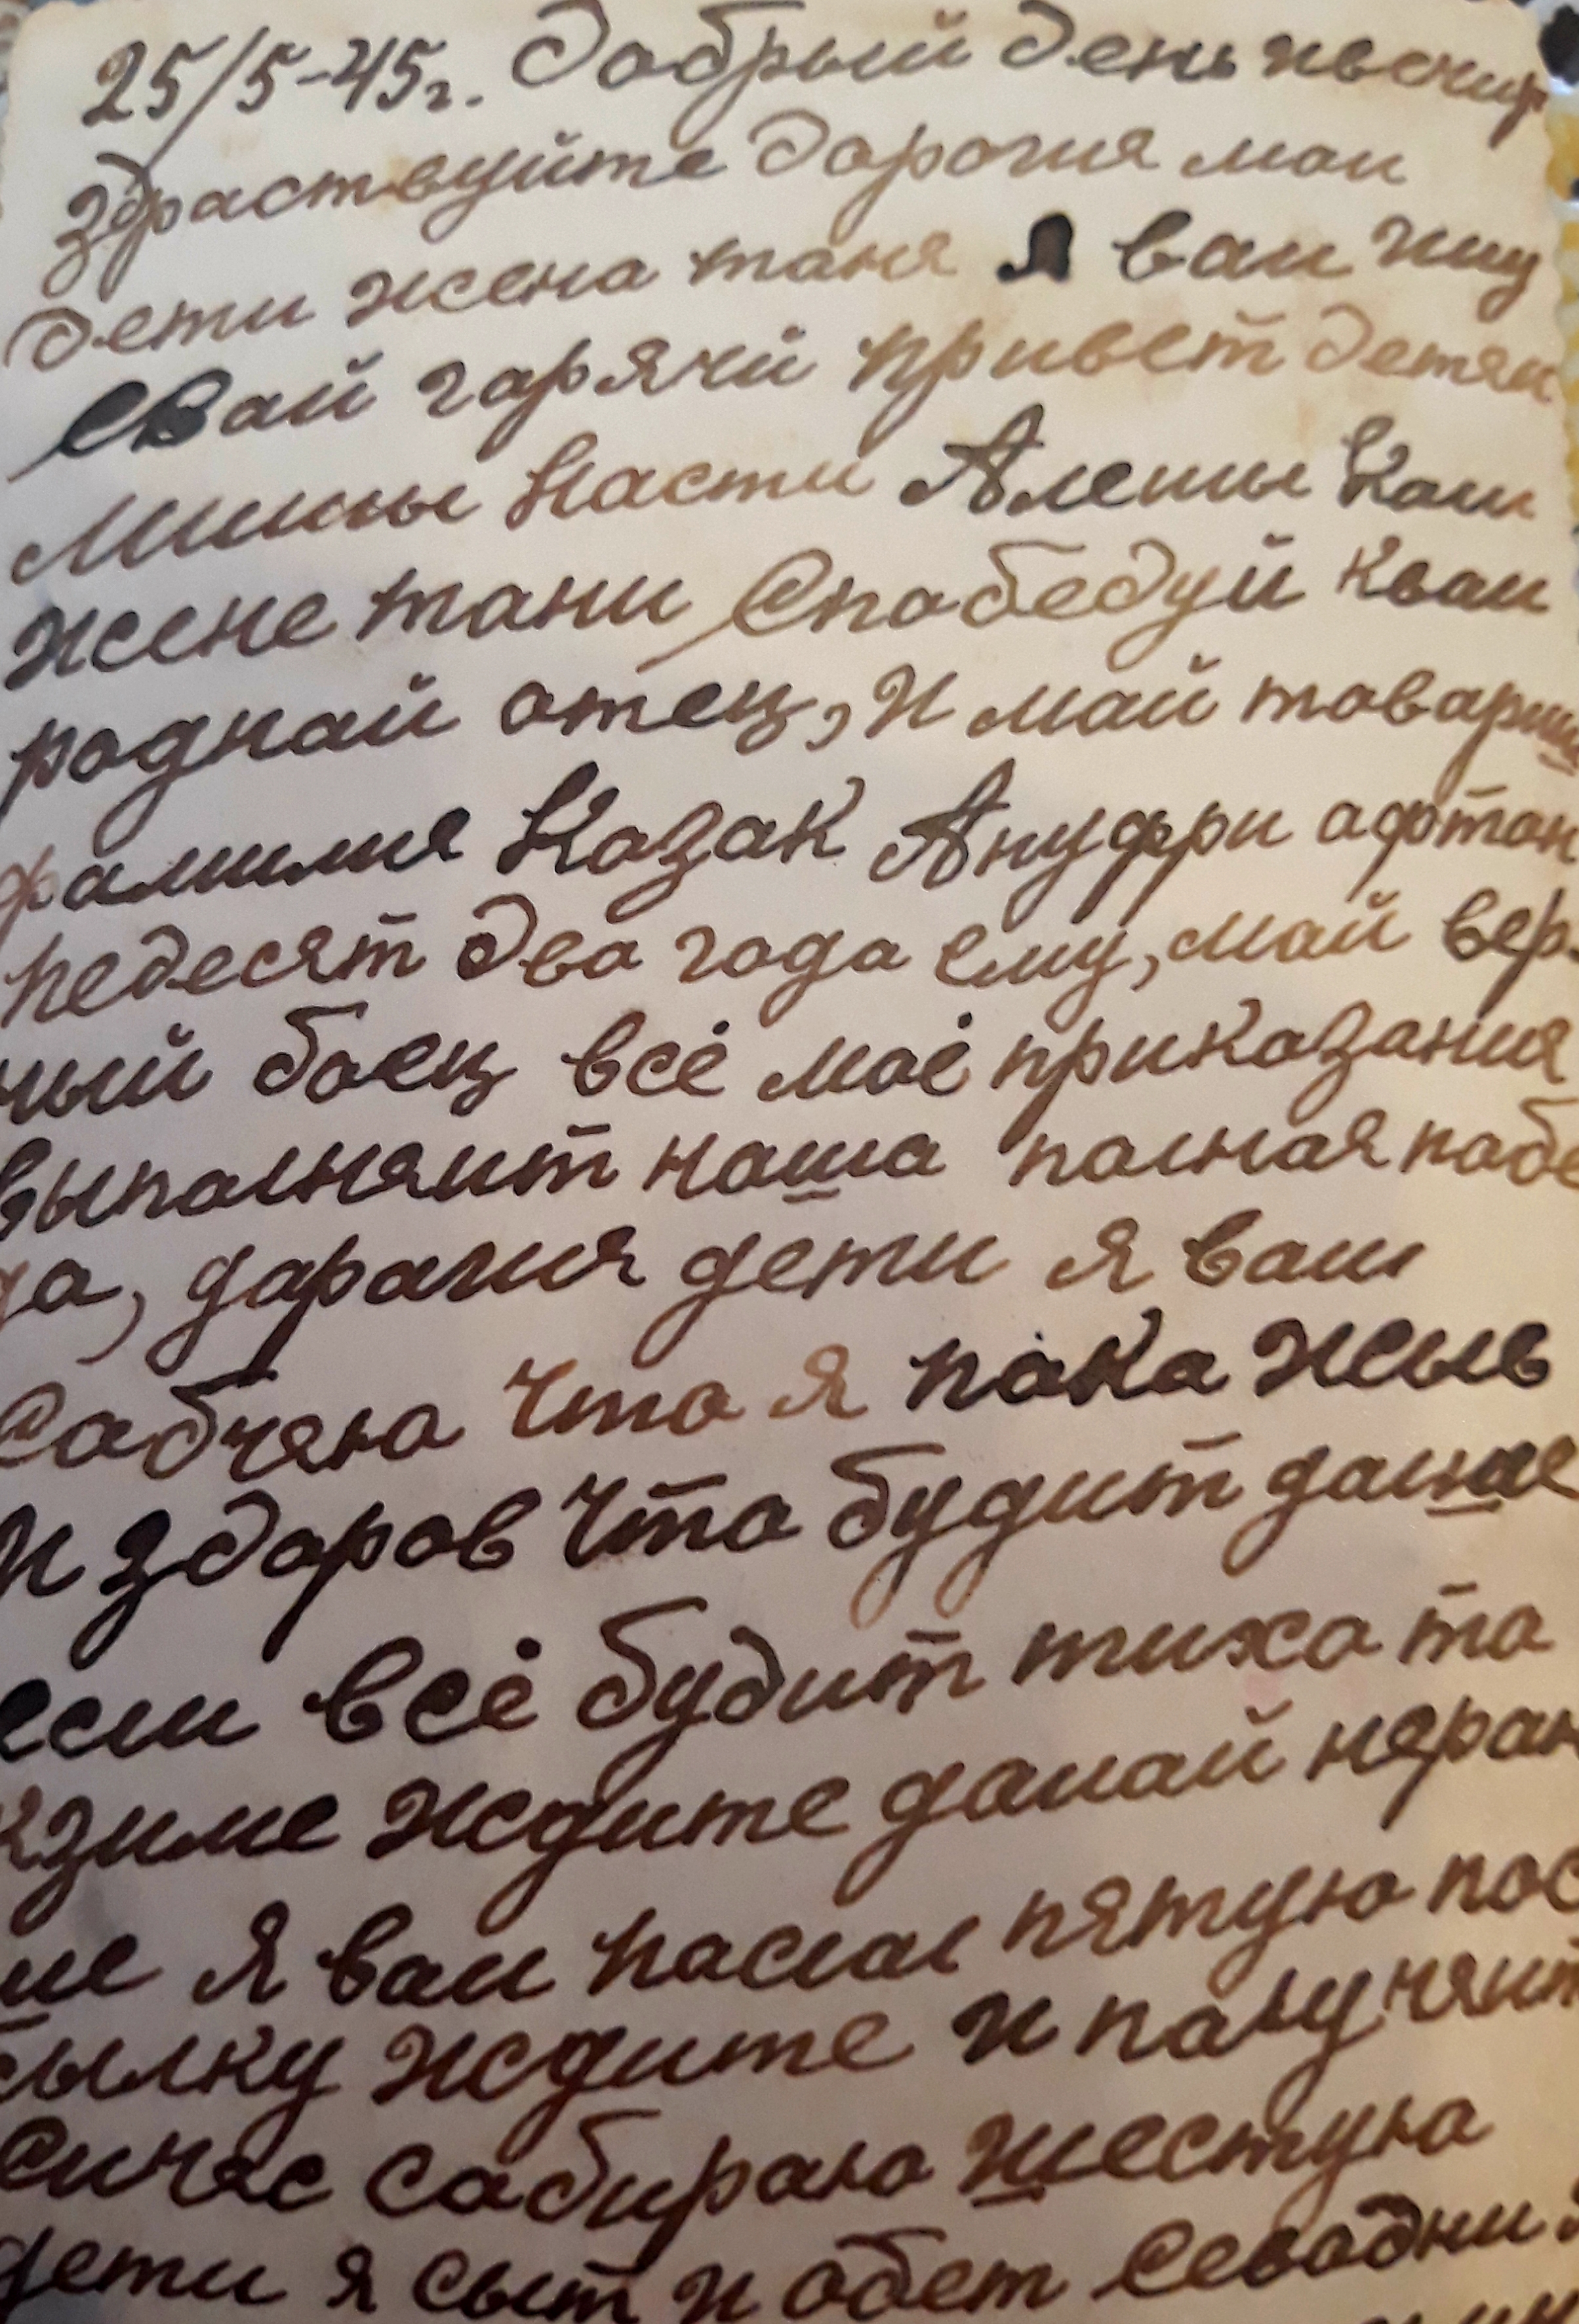 25/5-45г. Добрый день ивечир
Здраствуйте дорогия мои
дети жена таня Я вам шлу
Свай гарячи привет детям
Мишы Насти Алешы Коли
жене тани Спабедуй квам
роднай отец, И май товарищ
фамилия Казак Ануфри афтан
педесят два года ему, май вер-
ный боец всё моё приказания
выполняит наша полная побе
да, дарагия дети я вам
Сабчяю что я пака жыв
и здоров что будит далше
если всё будит тихо то
кзиме ждите дамай неран
ше Я вам паслал пятую пос
сылку ждите и палучяит
Сичяс сабираю шестую
дети я сыт и обет Севодни